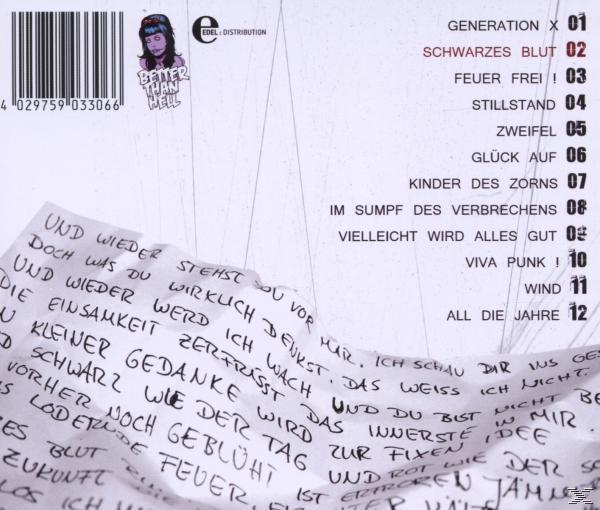 GENERATION X 01
SCHWARZES BLUT 02
FEUER FREI ! 03
STILLSTAND 04
ZWEIFEL 05
GLÜCK AUF 06
KINDER DES ZORNS 07
IM SUMPF DES VERBRECHENS 08
VIELLEICHT WIRD ALLES GUT 09
VIVA PUNK ! 10
WIND 11
ALL DIE JAHRE 12
4 029759 033066
BETTER
THAN
HELL
e
EDEL : DISTRIBUTION
UND WIEDER STEHST DU VOR MIR. ICH SCHAU DIR INS GES
DOCH WAS DU WIRKLICH DENKST. DAS WEISS ICH NICHT.
UND WIEDER WERD ICH WACH UND DU BIST NICHT BE
DIE EINSAMKEIT ZERFRISST DAS INNERSTE IN MIR.
N KLEINER GEDANKE WIRD ZUR FIXEN IDEE
D SCHWARZ WIE DER TAG UND ROT WIE DER SC
VORHER NOCH GEBLÜHT IST ERFROREN JÄMM
S LODERNDE FEUER.
ES BLUT
ZUKUNFT
LOS ICH